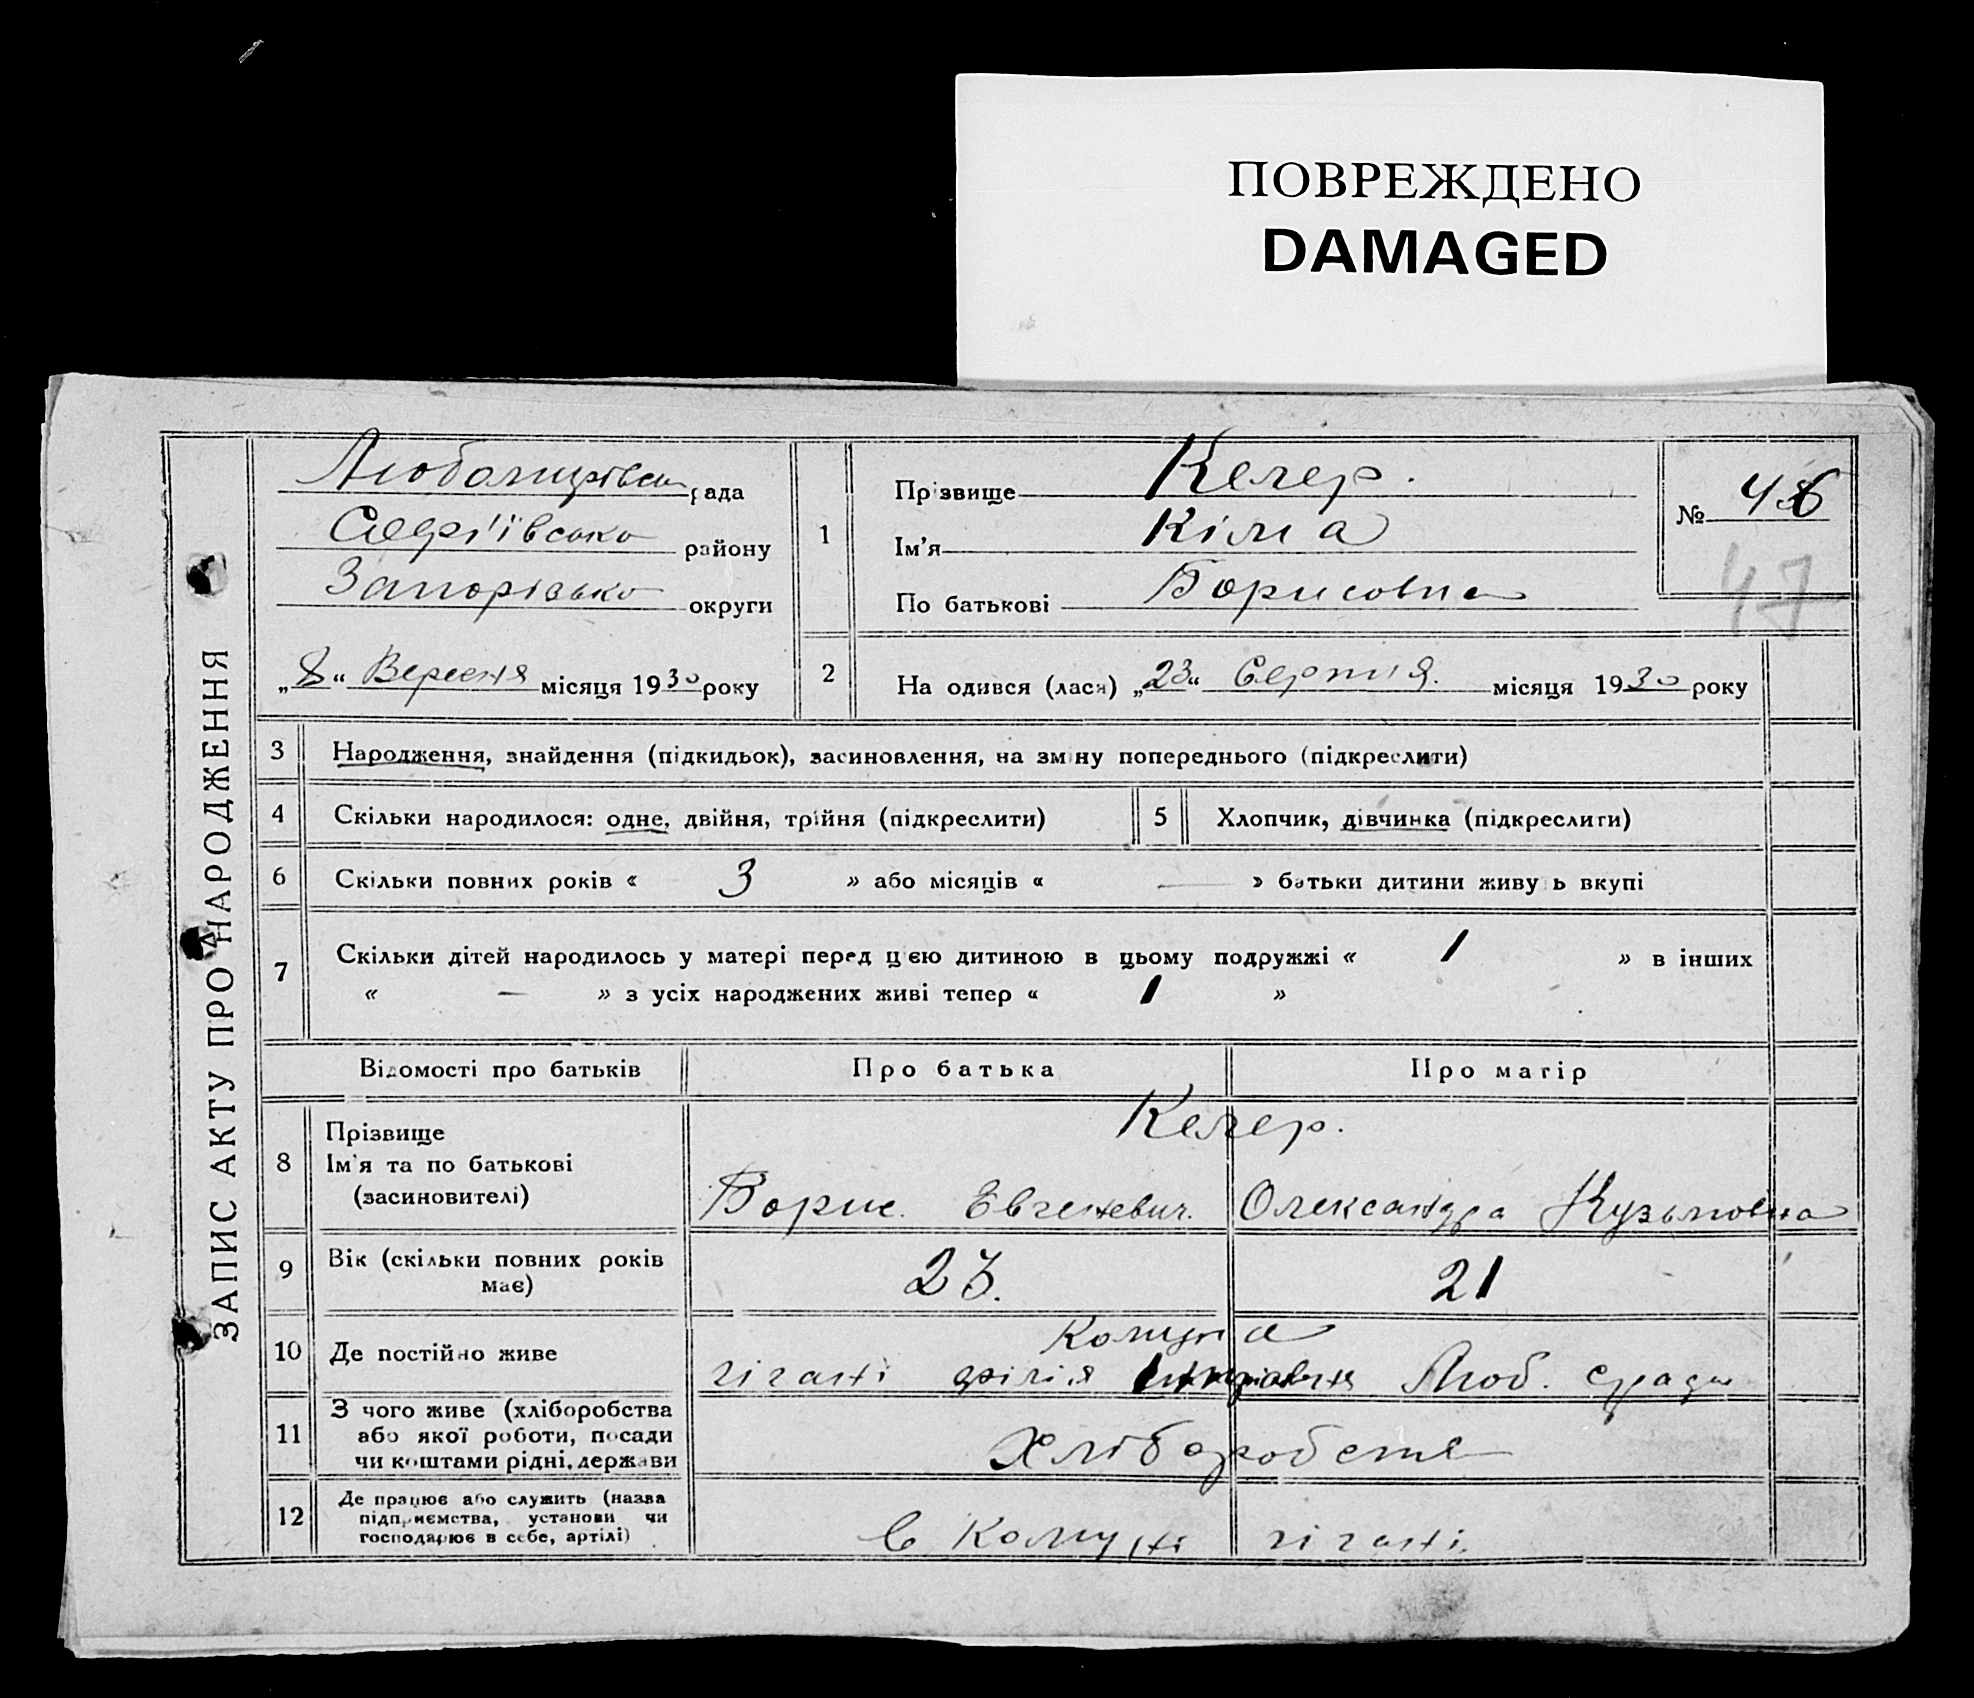 ПОВРЕЖДЕНО
DAMAGED
ЗАПИС АКТУ ПРО НАРОДЖЕННЯ
рада
району
Запорізько округи
„8“ Вересня місяця 1930 року
1
Прізвище Келер.
Ім'я Кіма
По батькові Борисовна
№ 46
47
2 На одився (лася) „23“ Серпня. місяця 1930 року
3 Народження, знайдення (підкидьок), засиновлення, на зміну попереднього (підкреслити)
4 Скільки народилося: одне, двійня, трійня (підкреслити) 5 Хлопчик, дівчинка (підкреслити)
6 Скільки повних років « 3 » або місяців « — » батьки дитини живуть вкупі
7 Скільки дітей народилось у матері перед цією дитиною в цьому подружжі « 1 » в інших
« — » з усіх народжених живі тепер « 1 »
Відомості про батьків Про батька Про матір
8 Прізвище
Ім'я та по батькові
(засиновителі)
Келер.
Борис. Евгеневич. Олександра Кузьмовна
9 Вік (скільки повних років
має)
23. 21
10 Де постійно живе
Комуна
гігант філія Люб. с/ради
11 З чого живе (хліборобства
або якої роботи, посади
чи коштами рідні, держави
Хліборобств
12 Де працює або служить (назва
підприємства, установи чи
господарює в себе, артілі)
в Комуні гігант.